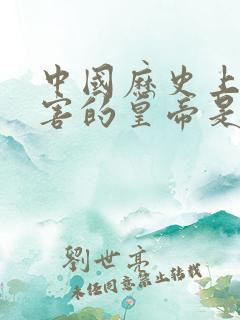 中國歷史上
害的皇帝是
劉世亮
未經同意禁止轉載